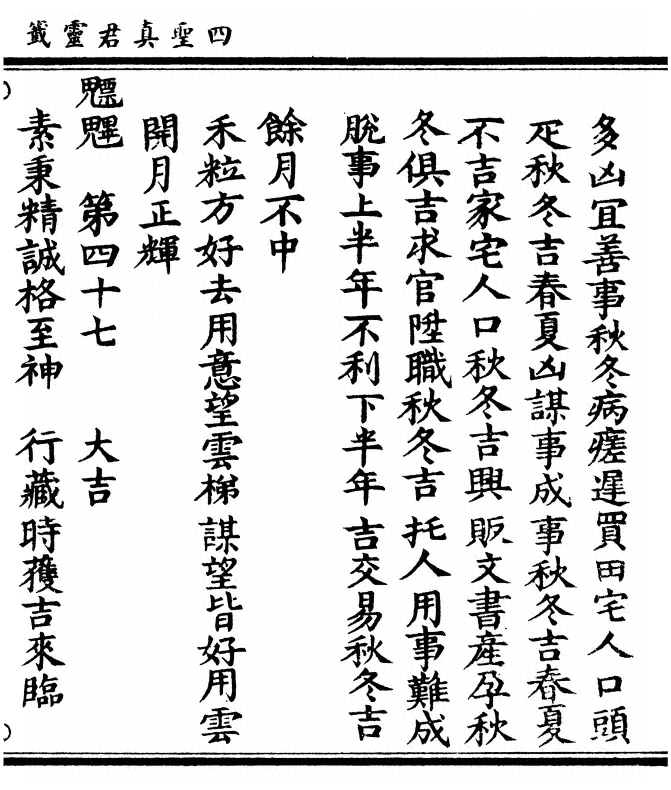 四聖真君靈籤
多凶宜善事秋冬病瘥遲買田宅人口頭
疋秋冬吉春夏凶謀事成事秋冬吉春夏
不吉家宅人口秋冬吉興販文書產孕秋
冬俱吉求官陞職秋冬吉托人用事難成
脫事上半年不利下半年吉交易秋冬吉
餘月不中
禾粒方好去用意望雲梯謀望皆好用雲
開月正輝
魒魓 第四十七 大吉
素秉精誠格至神 行藏時獲吉來臨